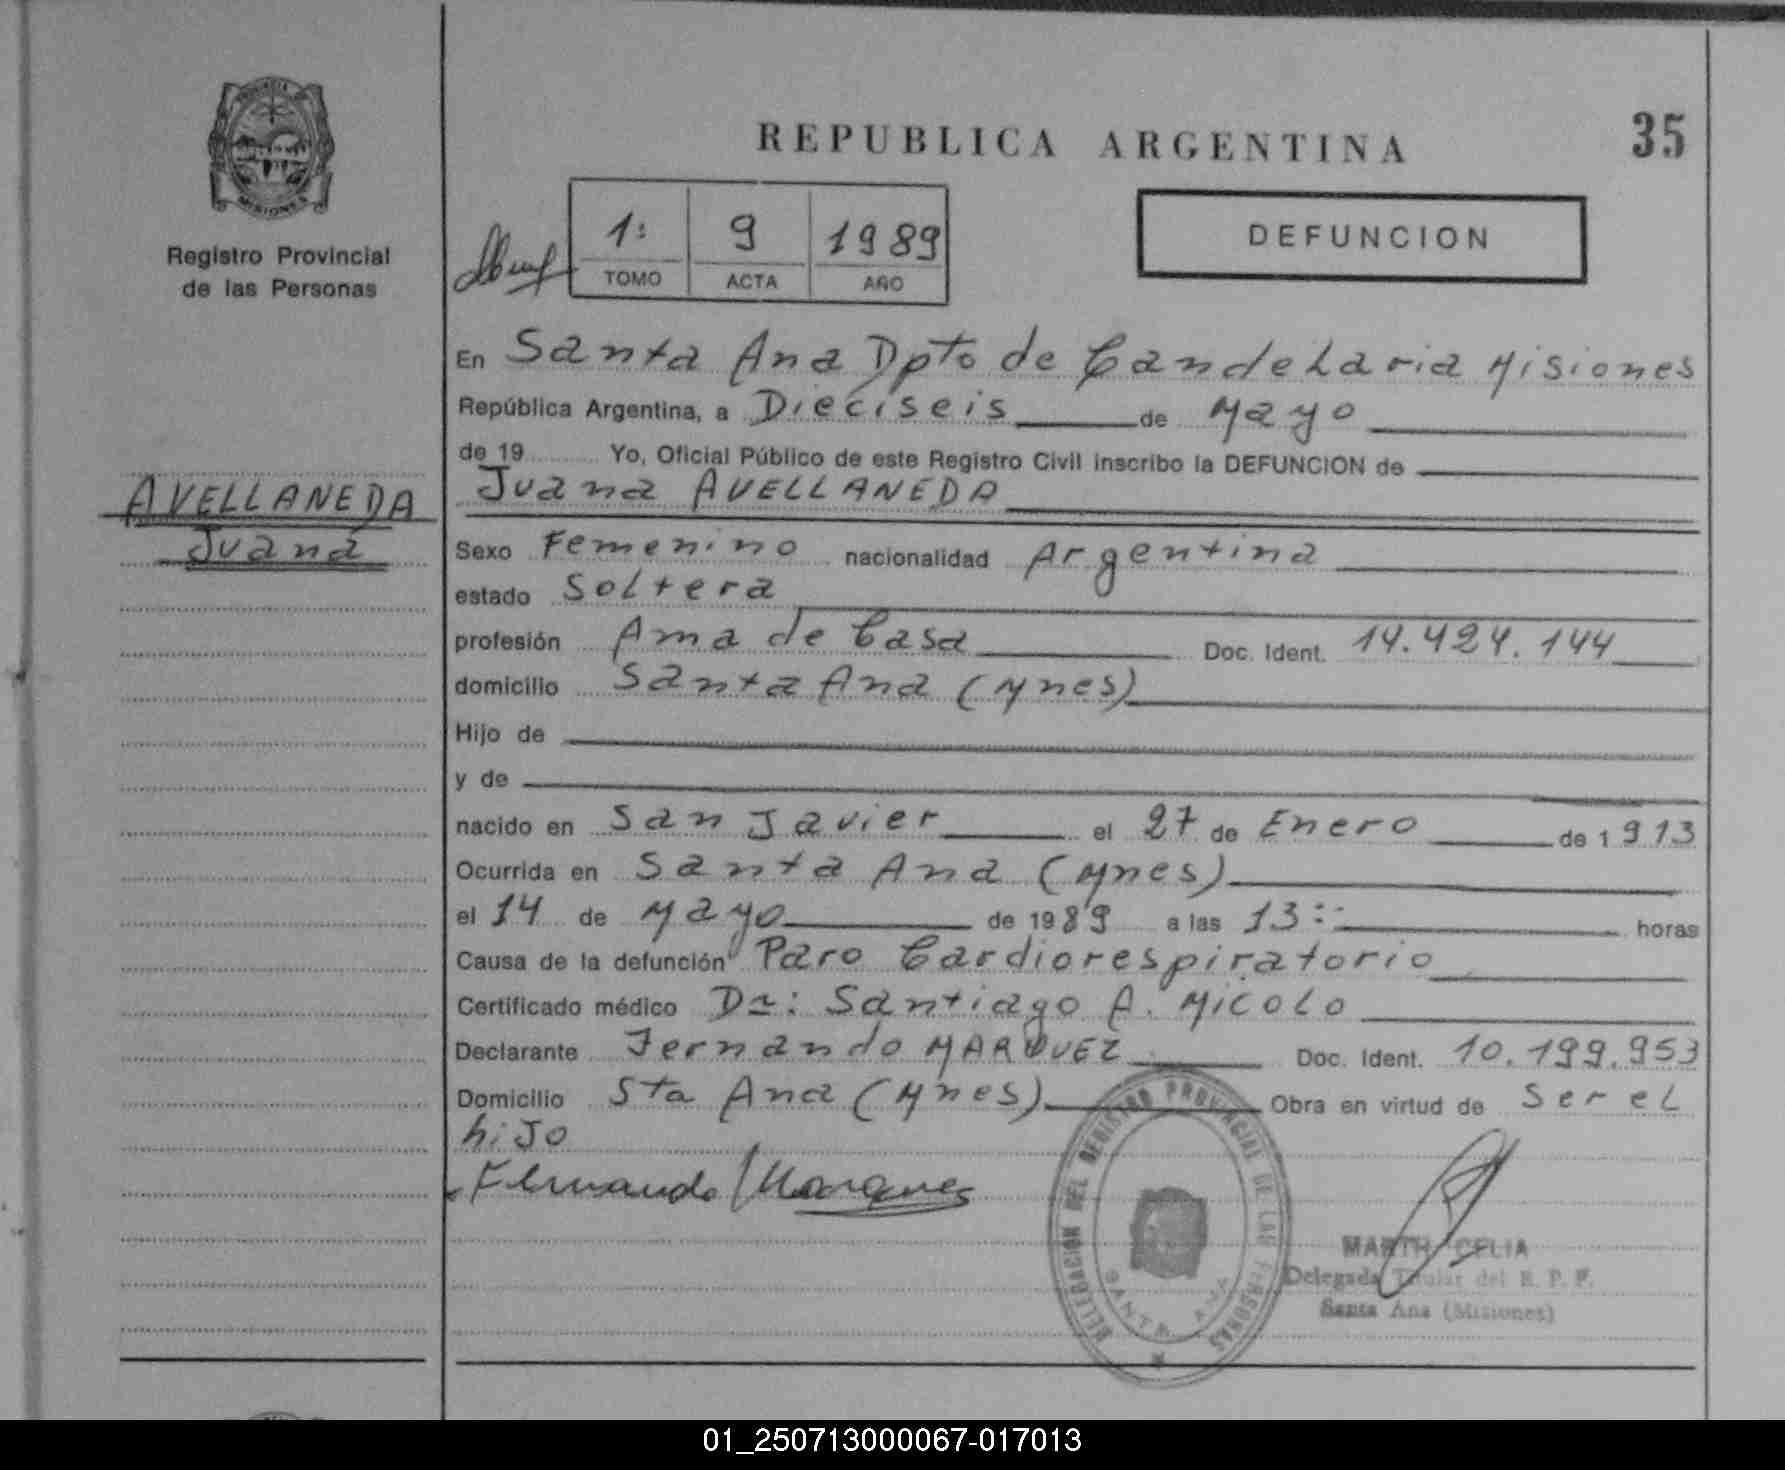 REPUBLICA ARGENTINA
35
PROVINCIA DE
MISIONES
Registro Provincial
de las Personas
1: 9 1989
TOMO ACTA AÑO
DEFUNCION
En Santa Ana Dpto de Candelaria Misiones
República Argentina, a Dieciseis de Mayo
de 19 Yo, Oficial Público de este Registro Civil inscribo la DEFUNCION de
Juana AVELLANEDA
AVELLANEDA
Juana
Sexo Femenino nacionalidad Argentina
estado Soltera
profesión Ama de Casa Doc. Ident. 14.424.144
domicilio Santa Ana (Mnes)
Hijo de
y de
nacido en San Javier el 27 de Enero de 1913
Ocurrida en Santa Ana (Mnes)
el 14 de Mayo de 1989 a las 13:- horas
Causa de la defunción Paro Cardiorespiratorio
Certificado médico Dr: Santiago A. Micolo
Declarante Fernando MARQUEZ Doc. Ident. 10.199.953
Domicilio Sta Ana (Mnes) Obra en virtud de Ser el
hijo
Fernando Marques
DELEGACION DEL REGISTRO PROVINCIAL DE LAS PERSONAS
SANTA ANA
CELIA
Delegada Titular del R. P. P.
Santa Ana (Misiones)
01_250713000067-017013